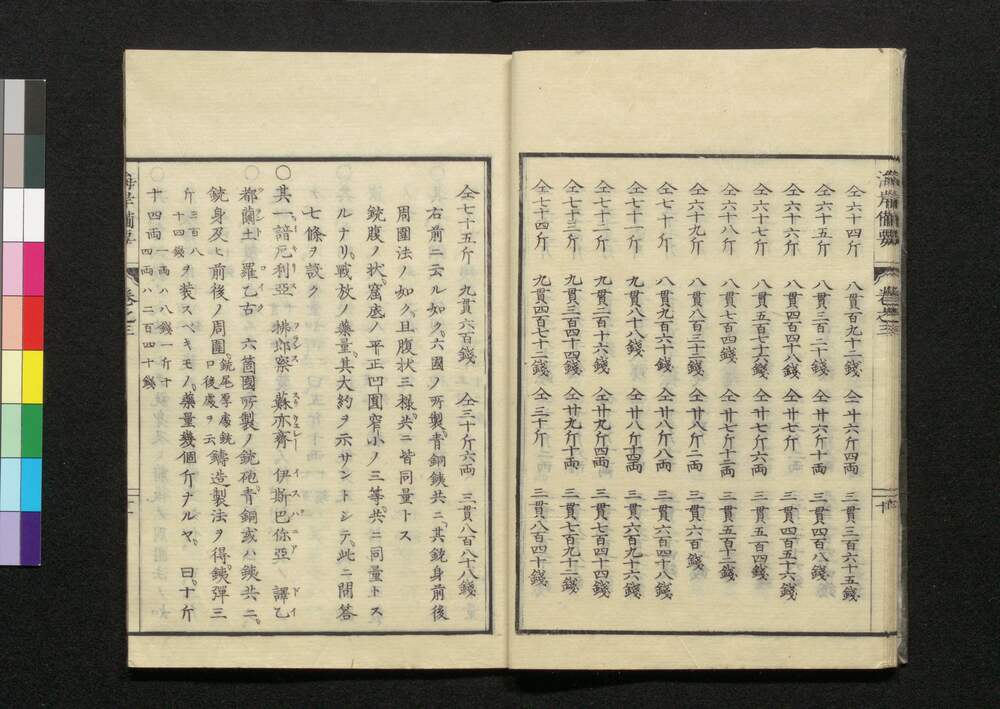 海岸備要
卷之三
十
仝六十四斤 八貫百九十二錢 仝二十六斤四両 三貫三百六十五錢
仝六十五斤 八貫三百二十錢 仝廿六斤十両 三貫四百八錢
仝六十六斤 八貫四百四十八錢 仝廿七斤 三貫四百五十六錢
仝六十七斤 八貫五百七十六錢 仝廿七斤六両 三貫五百四錢
仝六十八斤 八貫七百四錢 仝廿七斤十二両 三貫五百五十二錢
仝六十九斤 八貫八百三十二錢 仝廿八斤二両 三貫六百錢
仝七十斤 八貫九百六十錢 仝廿八斤八両 三貫六百四十八錢
仝七十一斤 九貫八十八錢 仝廿八斤十四両 三貫六百九十六錢
仝七十二斤 九貫二百十六錢 仝廿九斤四両 三貫七百四十四錢
仝七十三斤 九貫三百四十四錢 仝廿九斤十両 三貫七百九十二錢
仝七十四斤 九貫四百七十二錢 仝三十斤 三貫八百四十錢
仝七十五斤 九貫六百錢 仝三十斤六両 三貫八百八十八錢
右前ニ云ル如ク六國ノ所製青銅銕共ニ其銃身前後
周圍法ノ如ク且腹状三樣共ニ皆同量トス
銃腹ノ状窩底ノ平正凹圓窄小ノ三等共ニ同量トス
ルナリ戰放ノ藥量其大約ヲ示サントシテ此ニ問答
七條ヲ設ク
〇其一諳厄利亞 拂郎察 蘇亦齊 伊斯巴你亞 譯乙
都蘭土 羅乙古 六箇國所製ノ銃砲青銅或ハ銕共ニ
銃身及ヒ前後ノ周圍銃尾厚處銃口後處ヲ云鑄造製法ヲ得銕彈三
斤三百八十四錢ヲ装スベキモノ藥量幾個斤ナルヤ 曰十斤
十四両一両ハ八錢一斤十四両ハ二百四十錢
海岸備要
卷之三